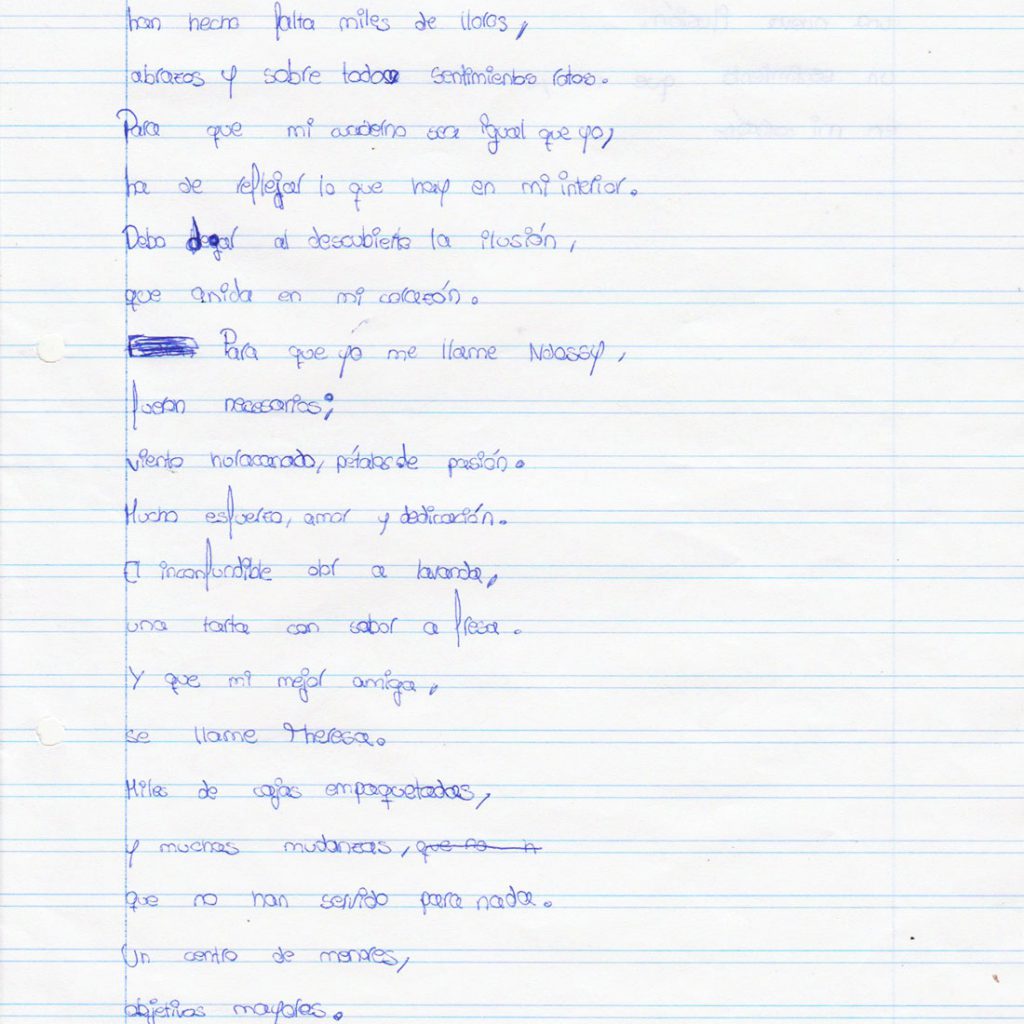 han hecho falta miles de lloros,
abrazos y sobre todo sentimientos rotos.
Para que mi cuaderno sea igual que yo,
ha de reflejar lo que hay en mi interior.
Debo dejar al descubierto la ilusión,
que anida en mi corazón.
Para que yo me llame Ndossy,
fueron necesarios;
viento huracanado, pétalos de pasión.
Mucho esfuerzo, amor y dedicación.
El inconfundible olor a lavanda,
una tarta con sabor a fresa.
Y que mi mejor amiga,
se llame Theresa.
Miles de cajas empaquetadas,
y muchas mudanzas, que no n
que no han servido para nada.
Un centro de menores,
objetivos mayores.